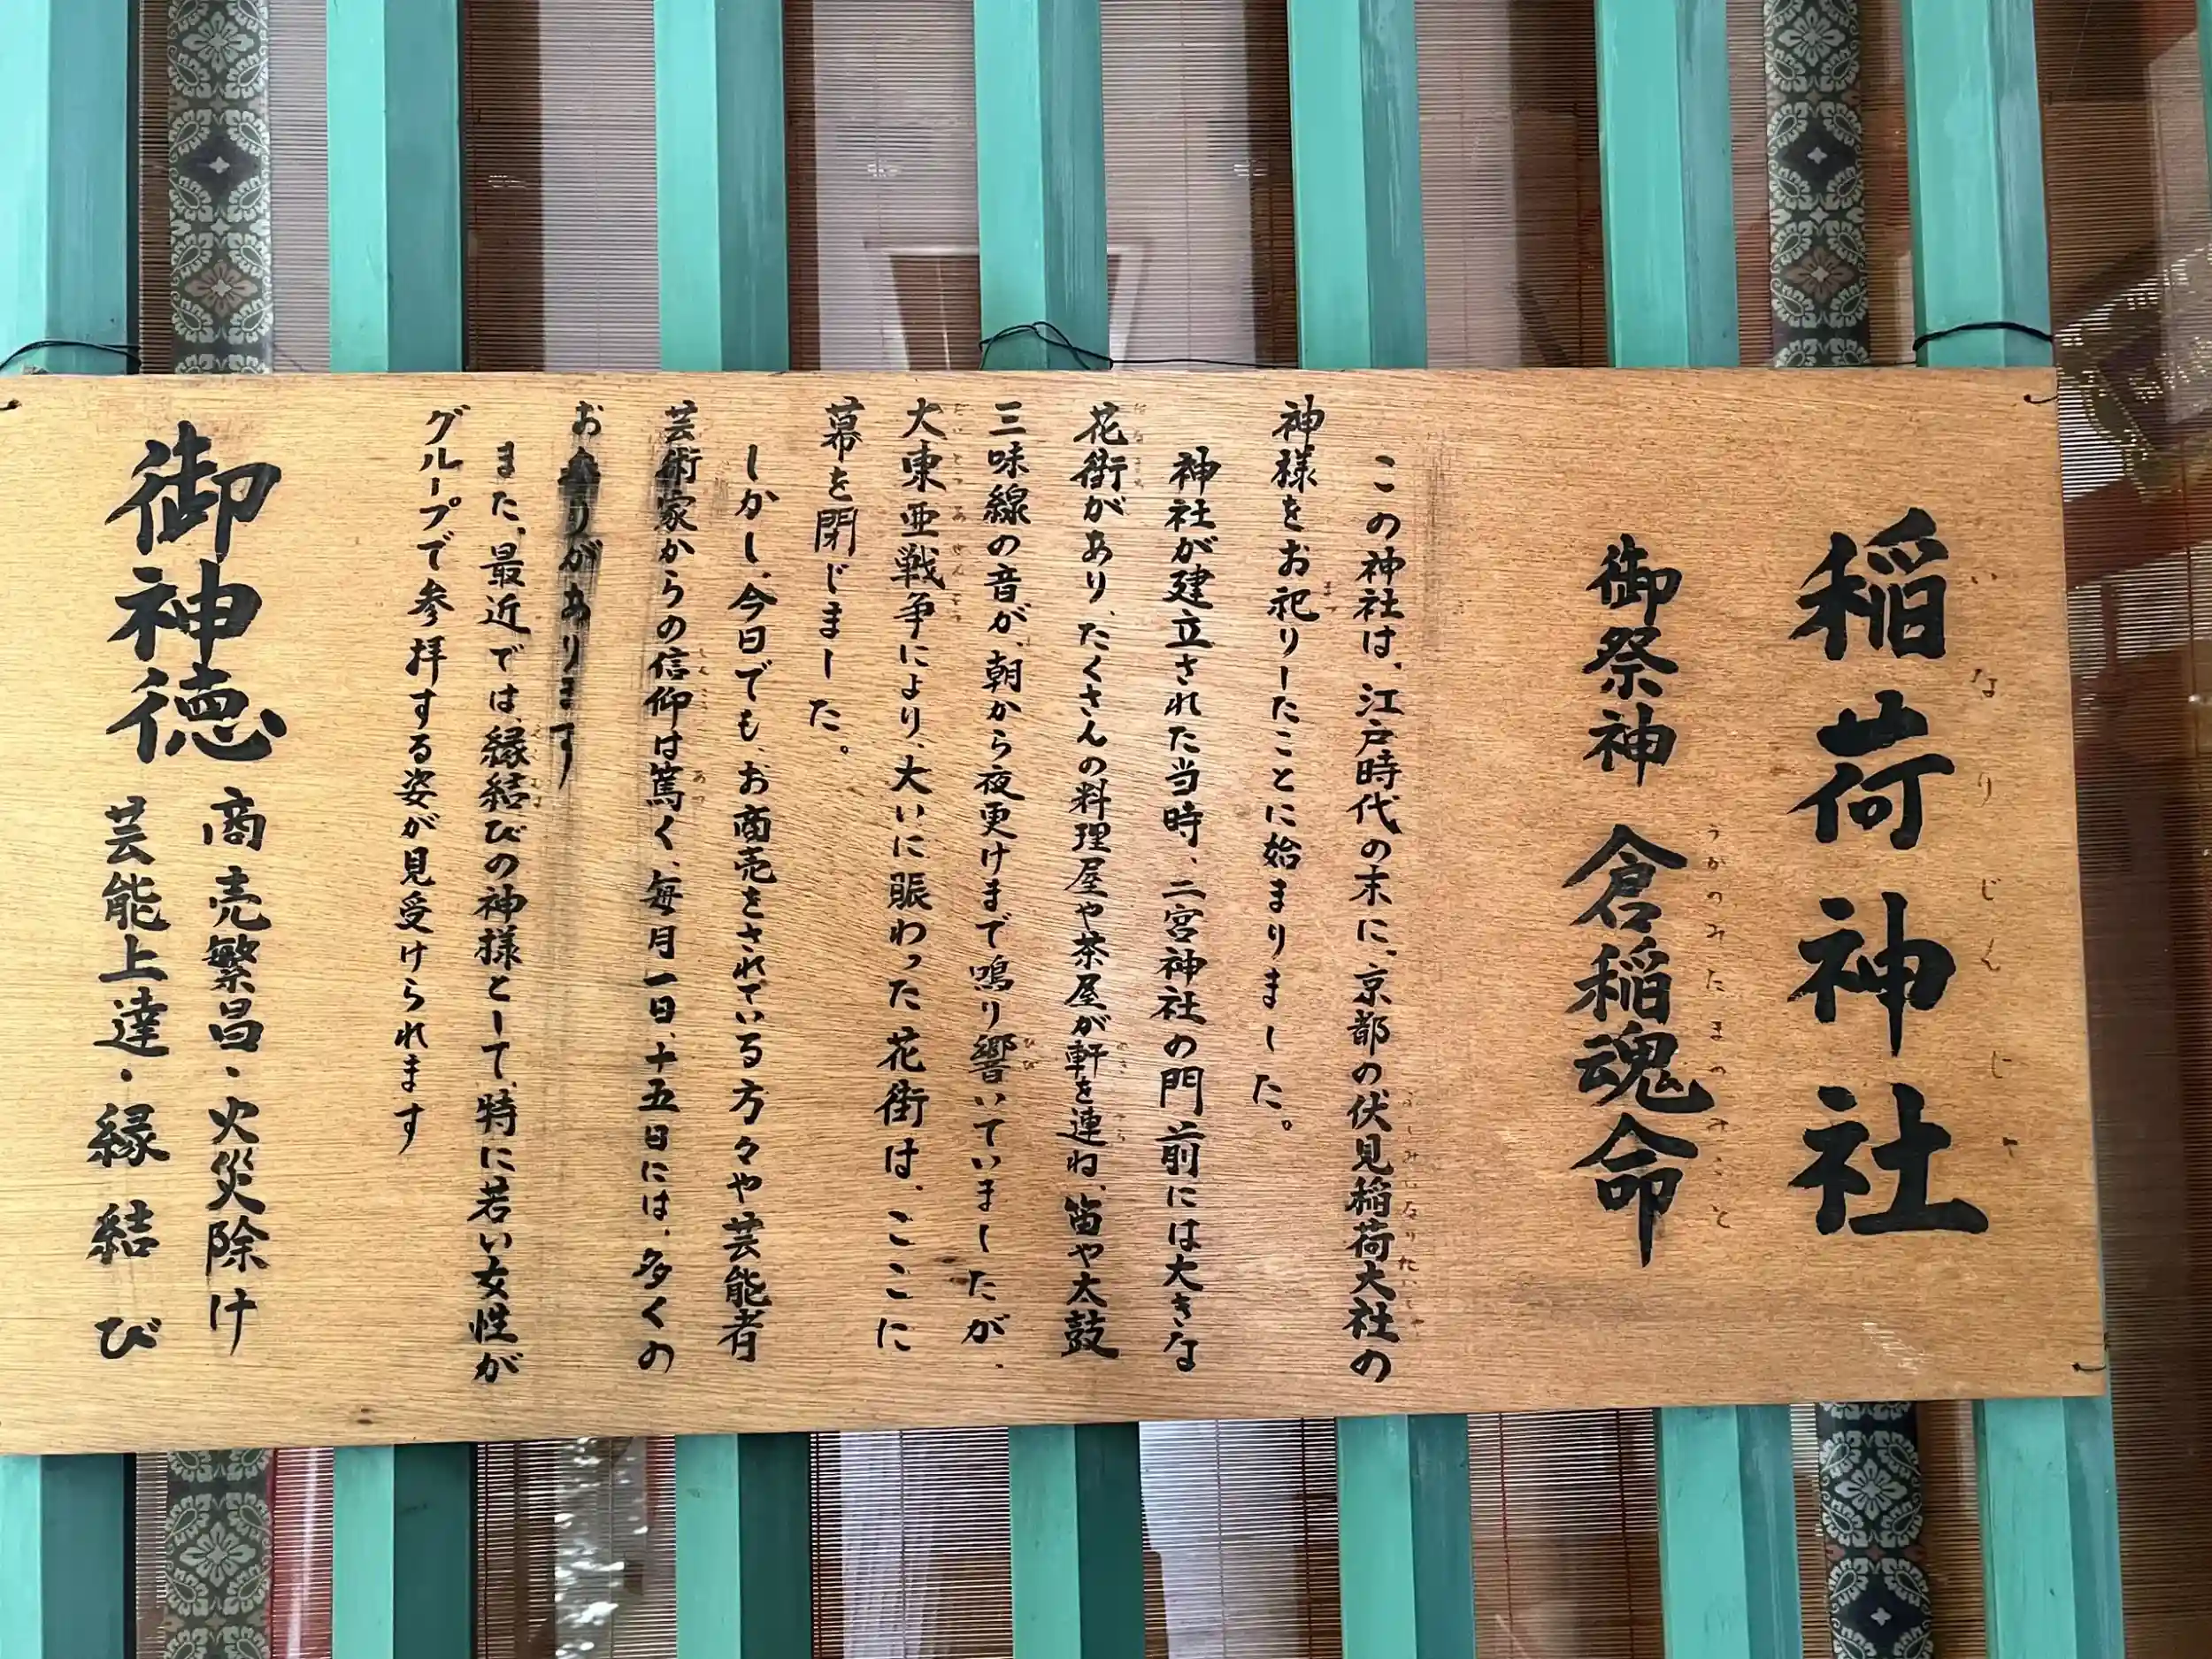 稲荷神社
いなりじんじゃ
御祭神 倉稲魂命
うかのみたまのみこと
この神社は、江戸時代の末に、京都の伏見稲荷大社の
神様をお祀りしたことに始まりました。
神社が建立された当時、二宮神社の門前には大きな
花街があり、たくさんの料理屋や茶屋が軒を連ね、笛や太鼓
三味線の音が、朝から夜更けまで鳴り響いていましたが、
大東亜戦争により、大いに賑わった花街は、ここに
幕を閉じました。
しかし、今日でも、お商売をされている方々や芸能者
芸術家からの信仰は篤く、毎月一日、十五日には、多くの
お参りがあります
また、最近では、縁結びの神様として、特に若い女性が
グループで参拝する姿が見受けられます
御神徳
商売繁昌・火災除け
芸能上達・縁結び